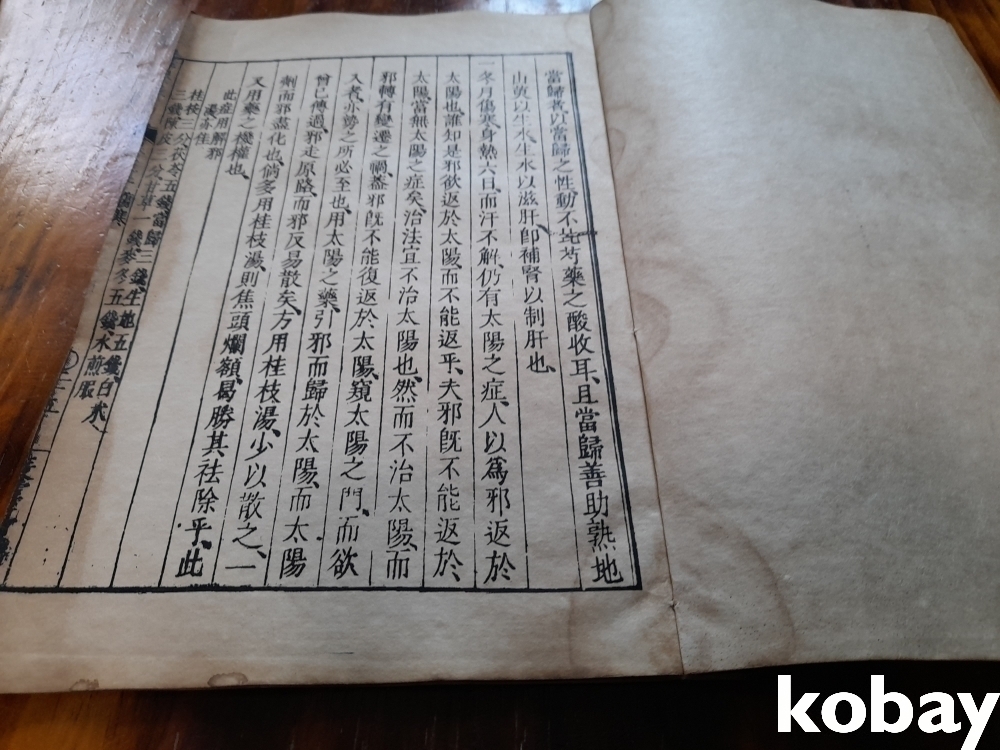 當歸者以當歸之性動不比芍藥之酸收耳且當歸善助熟地
山萸以生水生水以滋肝卽補腎以制肝也
一冬月傷寒身熱六日而汗不解仍有太陽之症人以爲邪返於
太陽也誰知是邪欲返於太陽而不能返乎夫邪旣不能返於
太陽當無太陽之症矣治法宜不治太陽也然而不治太陽而
邪轉有變遷之禍蓋邪旣不能復返於太陽窺太陽之門而欲
入者亦勢之所必至也用太陽之藥引邪而歸於太陽而太陽
曾已傳過邪走原路而邪反易散矣方用桂枝湯少以散之一
劑而邪盡化也倘多用桂枝湯則焦頭爛額曷勝其祛除乎此
又用藥之機權也
此症用解邪
桂枝三分茯苓五錢當歸三錢生地五錢白朮
三錢陳皮三分甘草一錢麥冬五錢水煎服
kobay